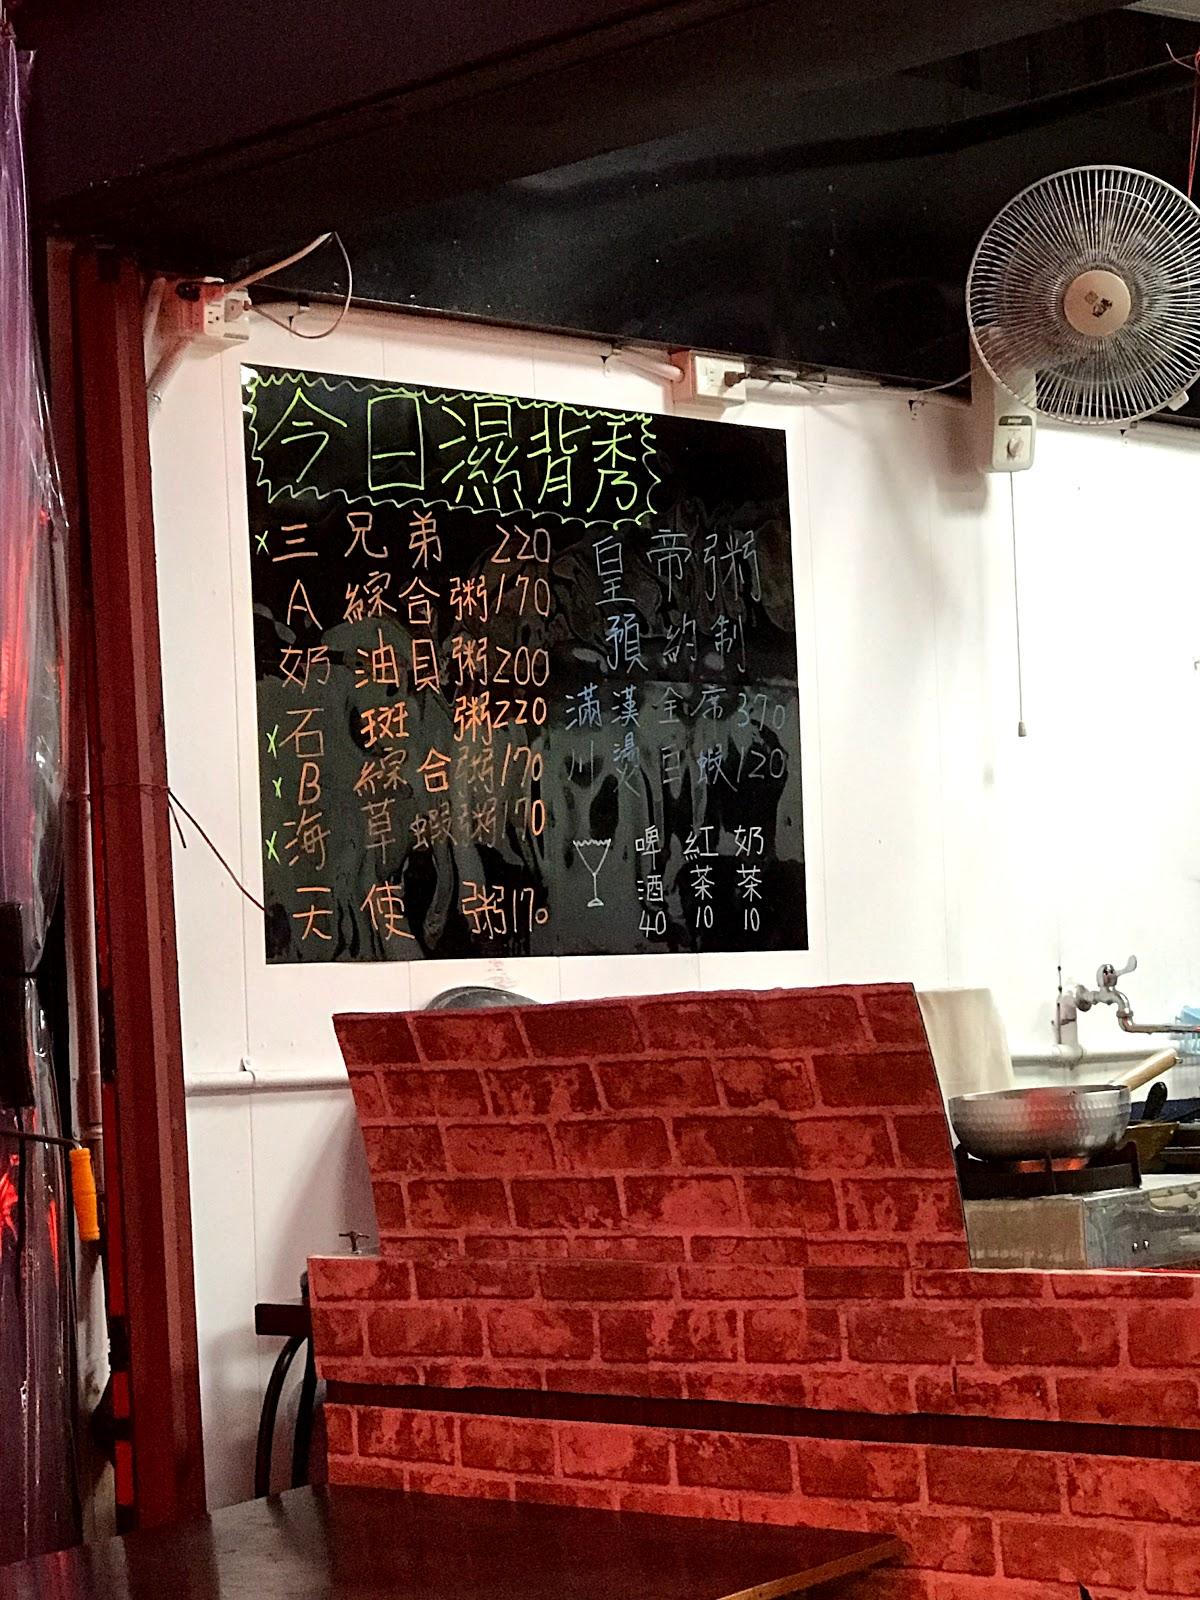 今日濕背秀
x三兄弟 220
A綜合粥170
奶油貝粥200
x石斑粥220
xB綜合粥170
x海草蝦粥170
天使粥170
皇帝粥
預約制
滿漢全席370
川燙白蝦120
啤酒40
紅茶10
奶茶10